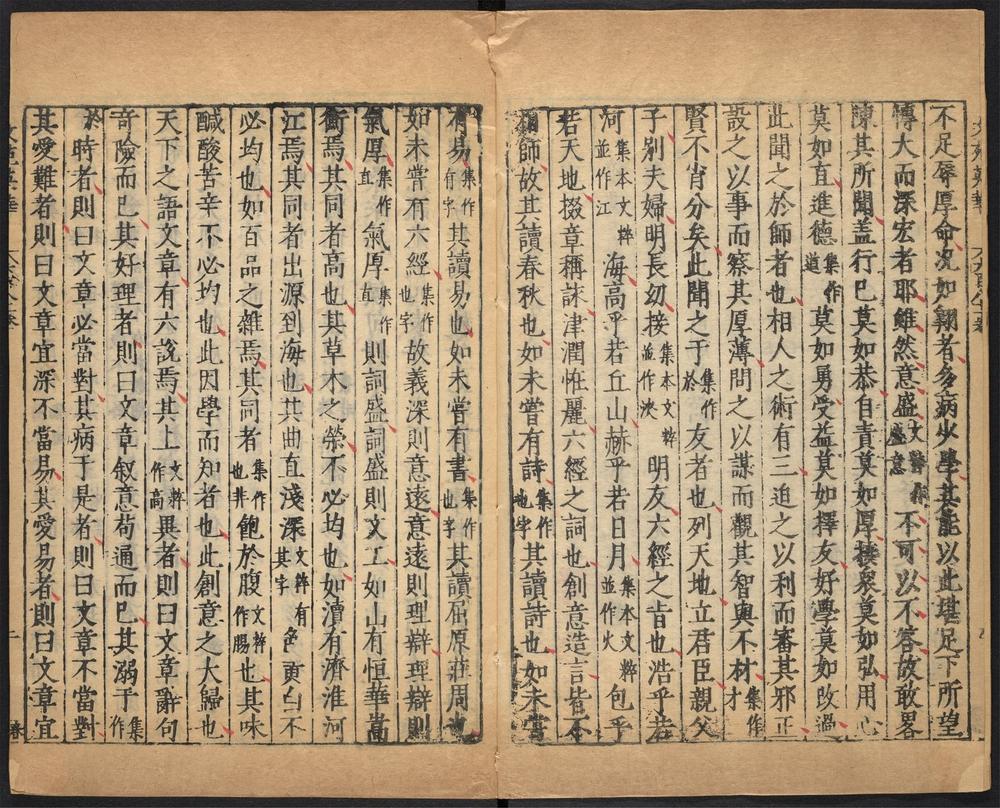 不足辱厚命况如翱者多病少學其能以此堪足下所望
博大而深宏者耶雖然意盛文粹作盛意不可以不答故敢畧
陳其所聞盖行已莫如恭自責莫如厚接衆莫如弘用心
莫如直進德集作道莫如勇受益莫如擇友好學莫如改過
此聞之於師者也相人之術有三迫之以利而審其邪正
設之以事而察其厚薄問之以謀而觀其智與不材集作才
賢不肖分矣此聞之于集作於友者也列天地立君臣親父
子别夫婦明長幼接集本文粹並作浹明友六經之旨也浩乎若
河集本文粹並作江海高乎若丘山赫乎若日月集本文粹並作火包乎
若天地掇章稱詠津潤恠麗六經之詞也創意造言皆不
相師故其讀春秋也如未嘗有詩集作也字其讀詩也如未嘗
有易集作有字其讀易也如未嘗有書集作也字其讀屈原莊周也
如未嘗有六經集作也字故義深則意遠意遠則理辯理辯則
氣厚集作直氣厚集作直則詞盛詞盛則文工如山有恒華嵩
衡焉其同者高也其草木之榮不必均也如瀆有濟淮河
江焉其同者出源到海也其曲直淺深文粹有其字色黄白不
必均也如百品之雜焉其同者集作也非飽於腹文粹作腸也其味
鹹酸苦辛不必均也此因學而知者也此創意之大歸也
天下之語文章有六說焉其上文粹作高異者則曰文章辭句
奇險而已其好理者則曰文章叙意苟通而已其溺于集作
於時者則曰文章必當對其病于是者則曰文章不當對
其愛難者則曰文章宜深不當易其愛易者則曰文章宜